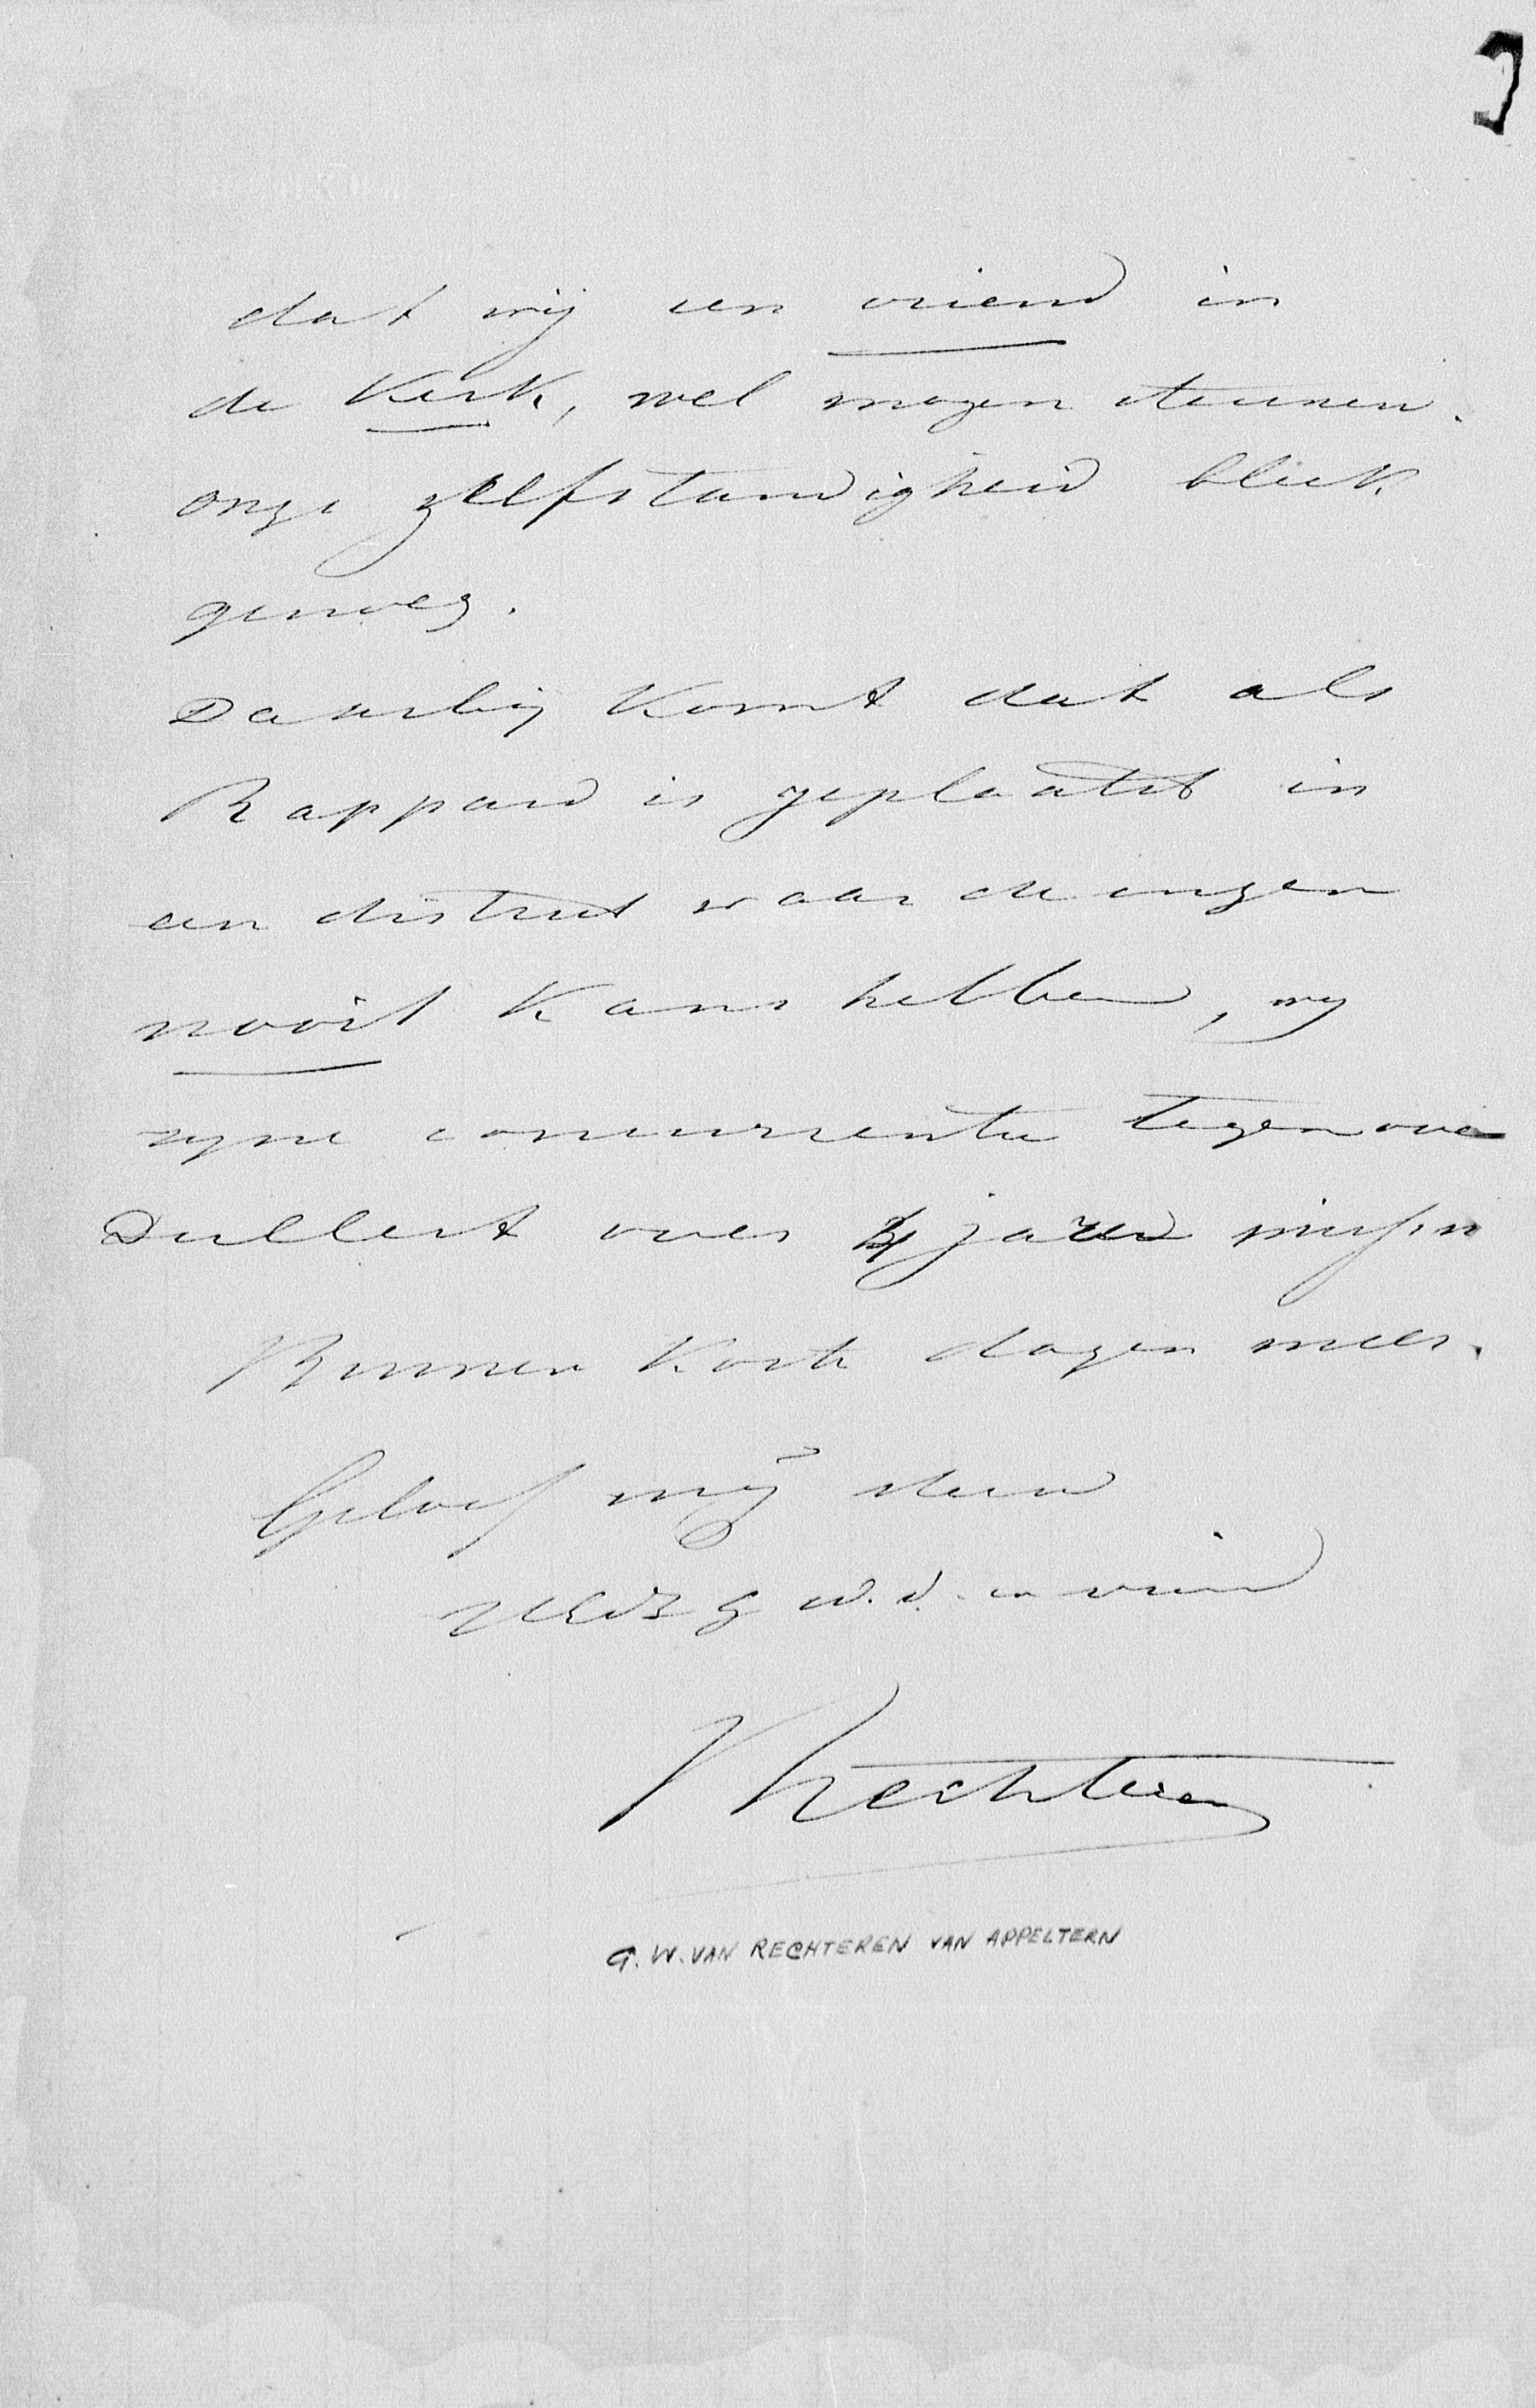 dat wij een vriend in
de Kerk, wel mogen steunen.
onze zelfstandigheid bleek
genoeg.
Daarbij komt dat als
Rappard is geplaatst in
een district waar de onzen
nooit kans hebben, wij
zyne concurrentie tegenover
Dullert over 4 jaren missen
Binnen korte dagen meer.
Geloof mij steeds
UEDZG w. d. en vriend
VRechteren
G. W. VAN RECHTEREN VAN APPELTERN